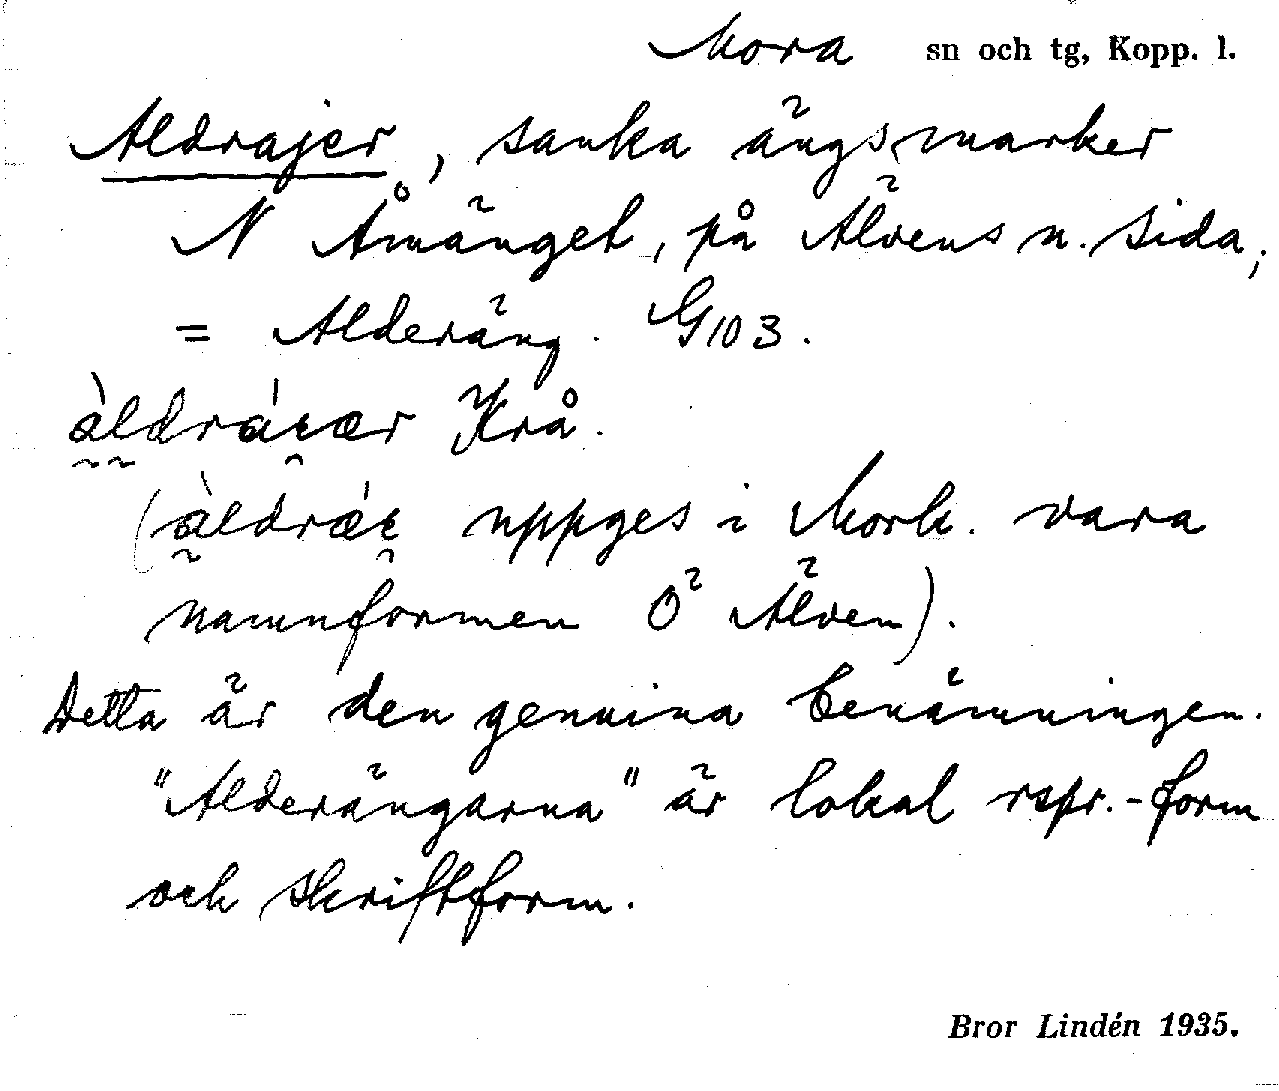 Mora sn och tg, Kopp. l.
Aldrajer, sanka ängsmarker
N Åmänget, på Älvens n. sida,
= Alderäng. G103.
Krå.
uppges i Mork. vara
namnformen Ö Älven).
Detta är den genuina benämningen.
"Alderängarna" är lokal rspr.-form
och skriftform.
Bror Lindén 1935.